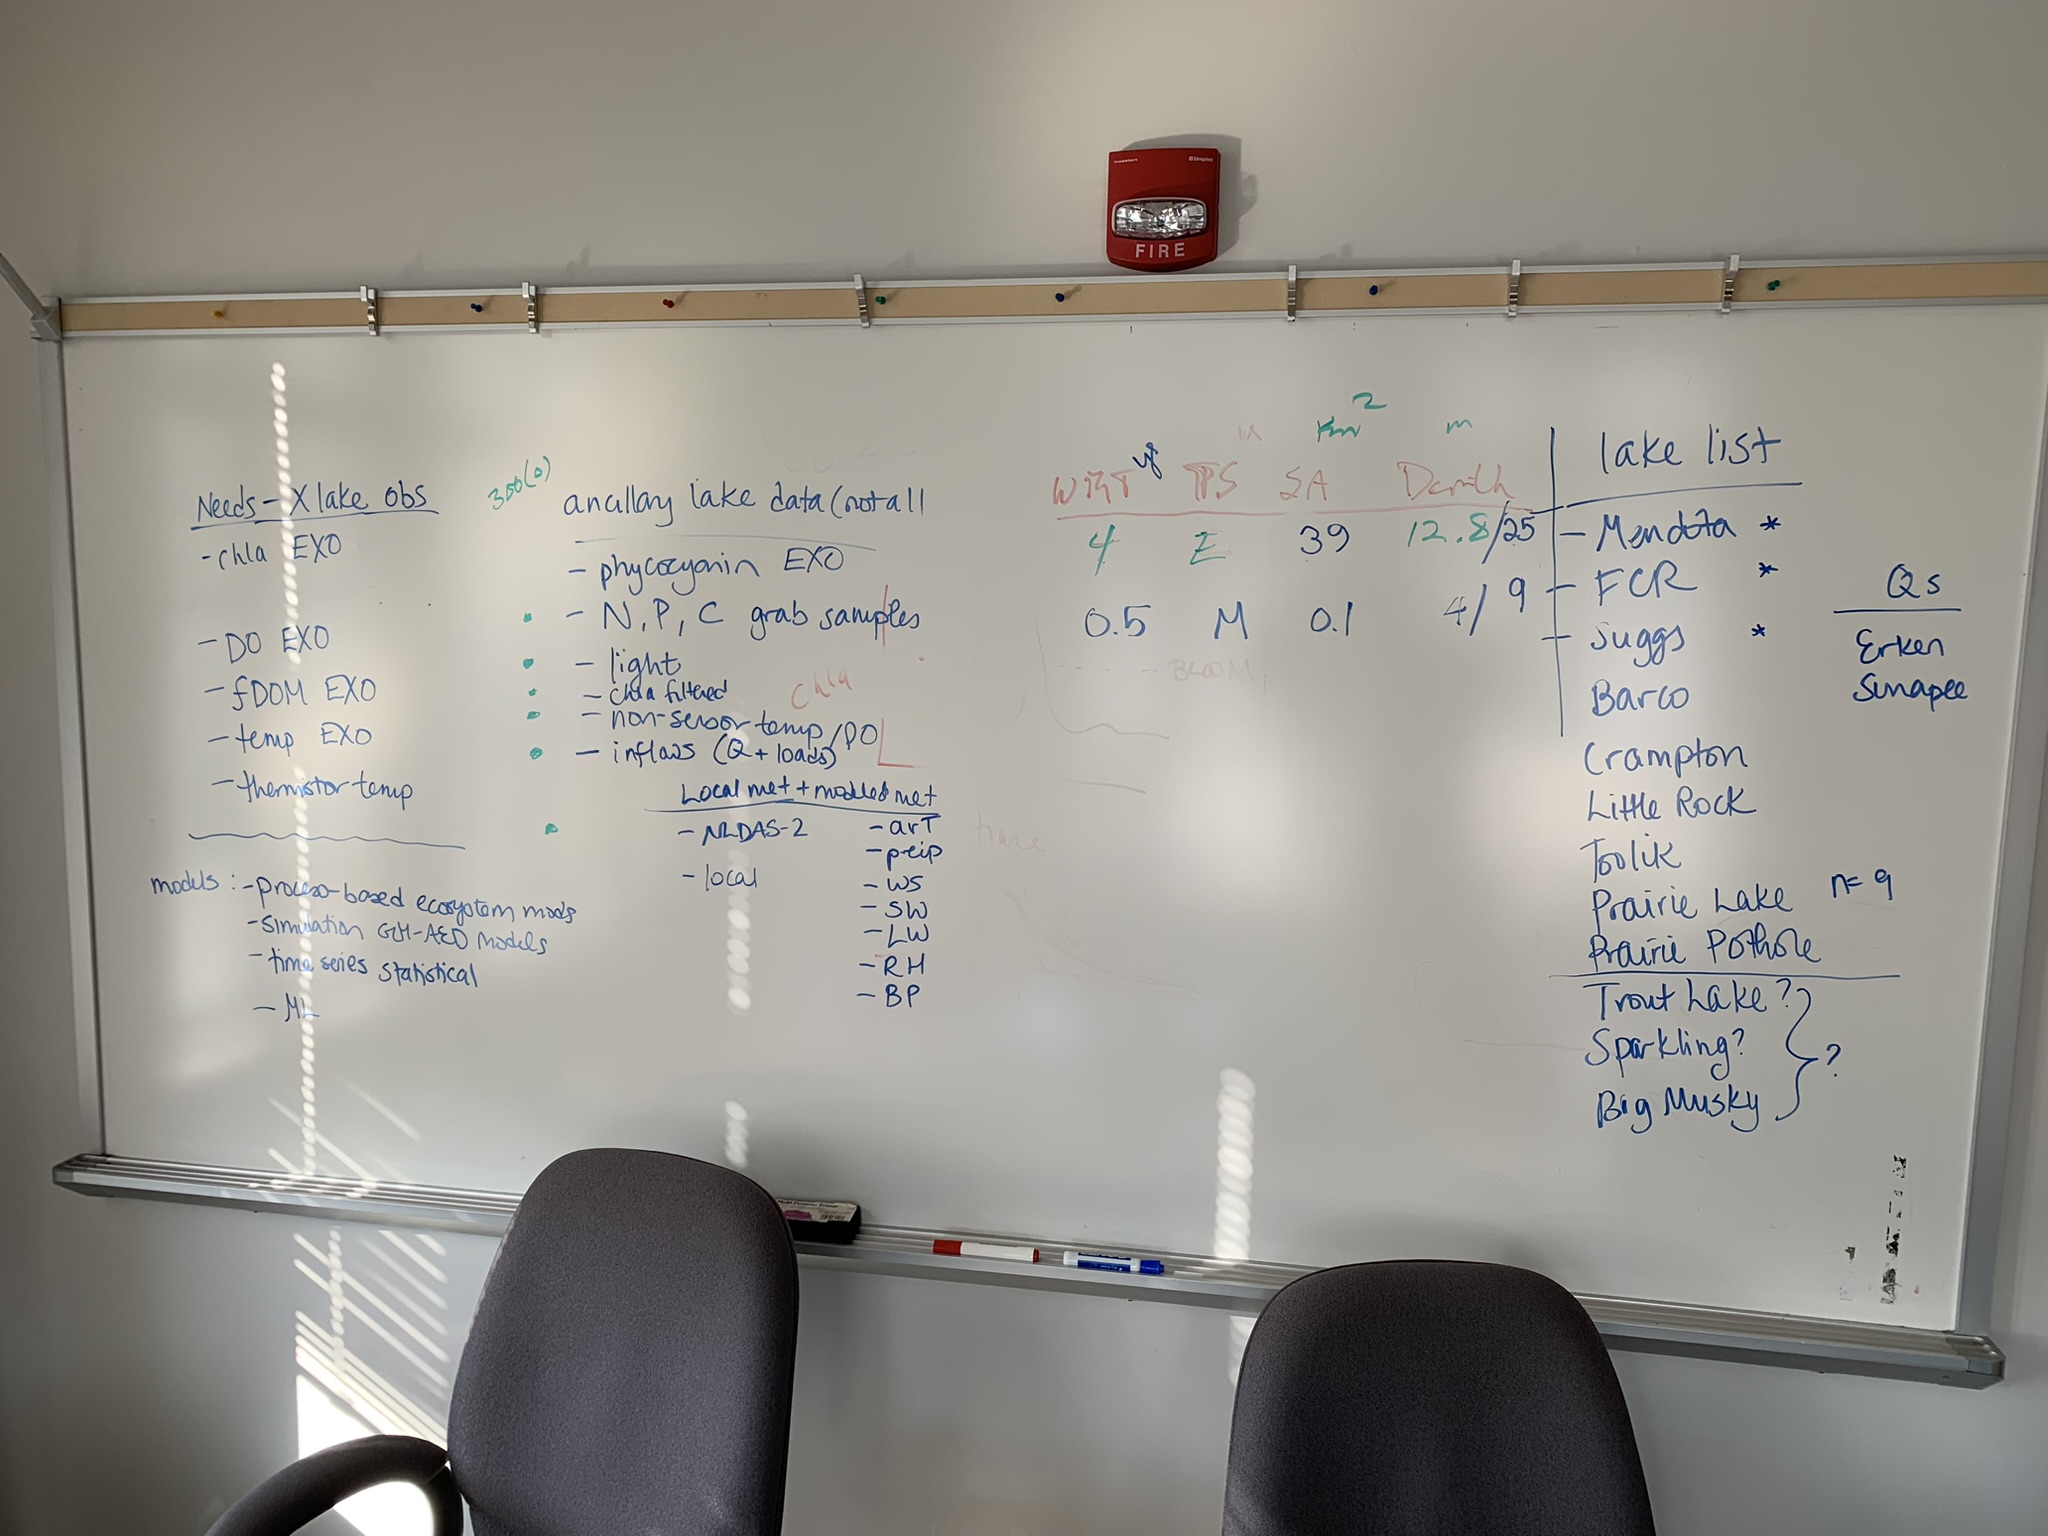 Simplex
FIRE
Needs - X lake obs
- chla EXO
- DO EXO
- fDOM EXO
- temp EXO
- thermistor temp
models: - process-based ecosystem mods
- simulation GLM-AED models
- time series statistical
- ML
ancillary lake data (not all
- phycocyanin EXO
- N, P, C grab samples
- light
- chla filtered
chla
- non-sensor temp/DO
- inflows (Q + loads)
Local met + modeled met
- NLDAS-2
- local
- airT
- precip
- WS
- SW
- LW
- RH
- BP
km2 m
WRT TPS SA Depth
4 E 39 12.8/25
0.5 M 0.1 4/9
BLOOM
lake list
- Mendota *
- FCR *
- Suggs *
Barco
Crampton
Little Rock
Toolik
Prairie Lake n=9
Prairie Pothole
Trout Lake?
Sparkling? ?
Big Musky
Qs
Erken
Sunapee